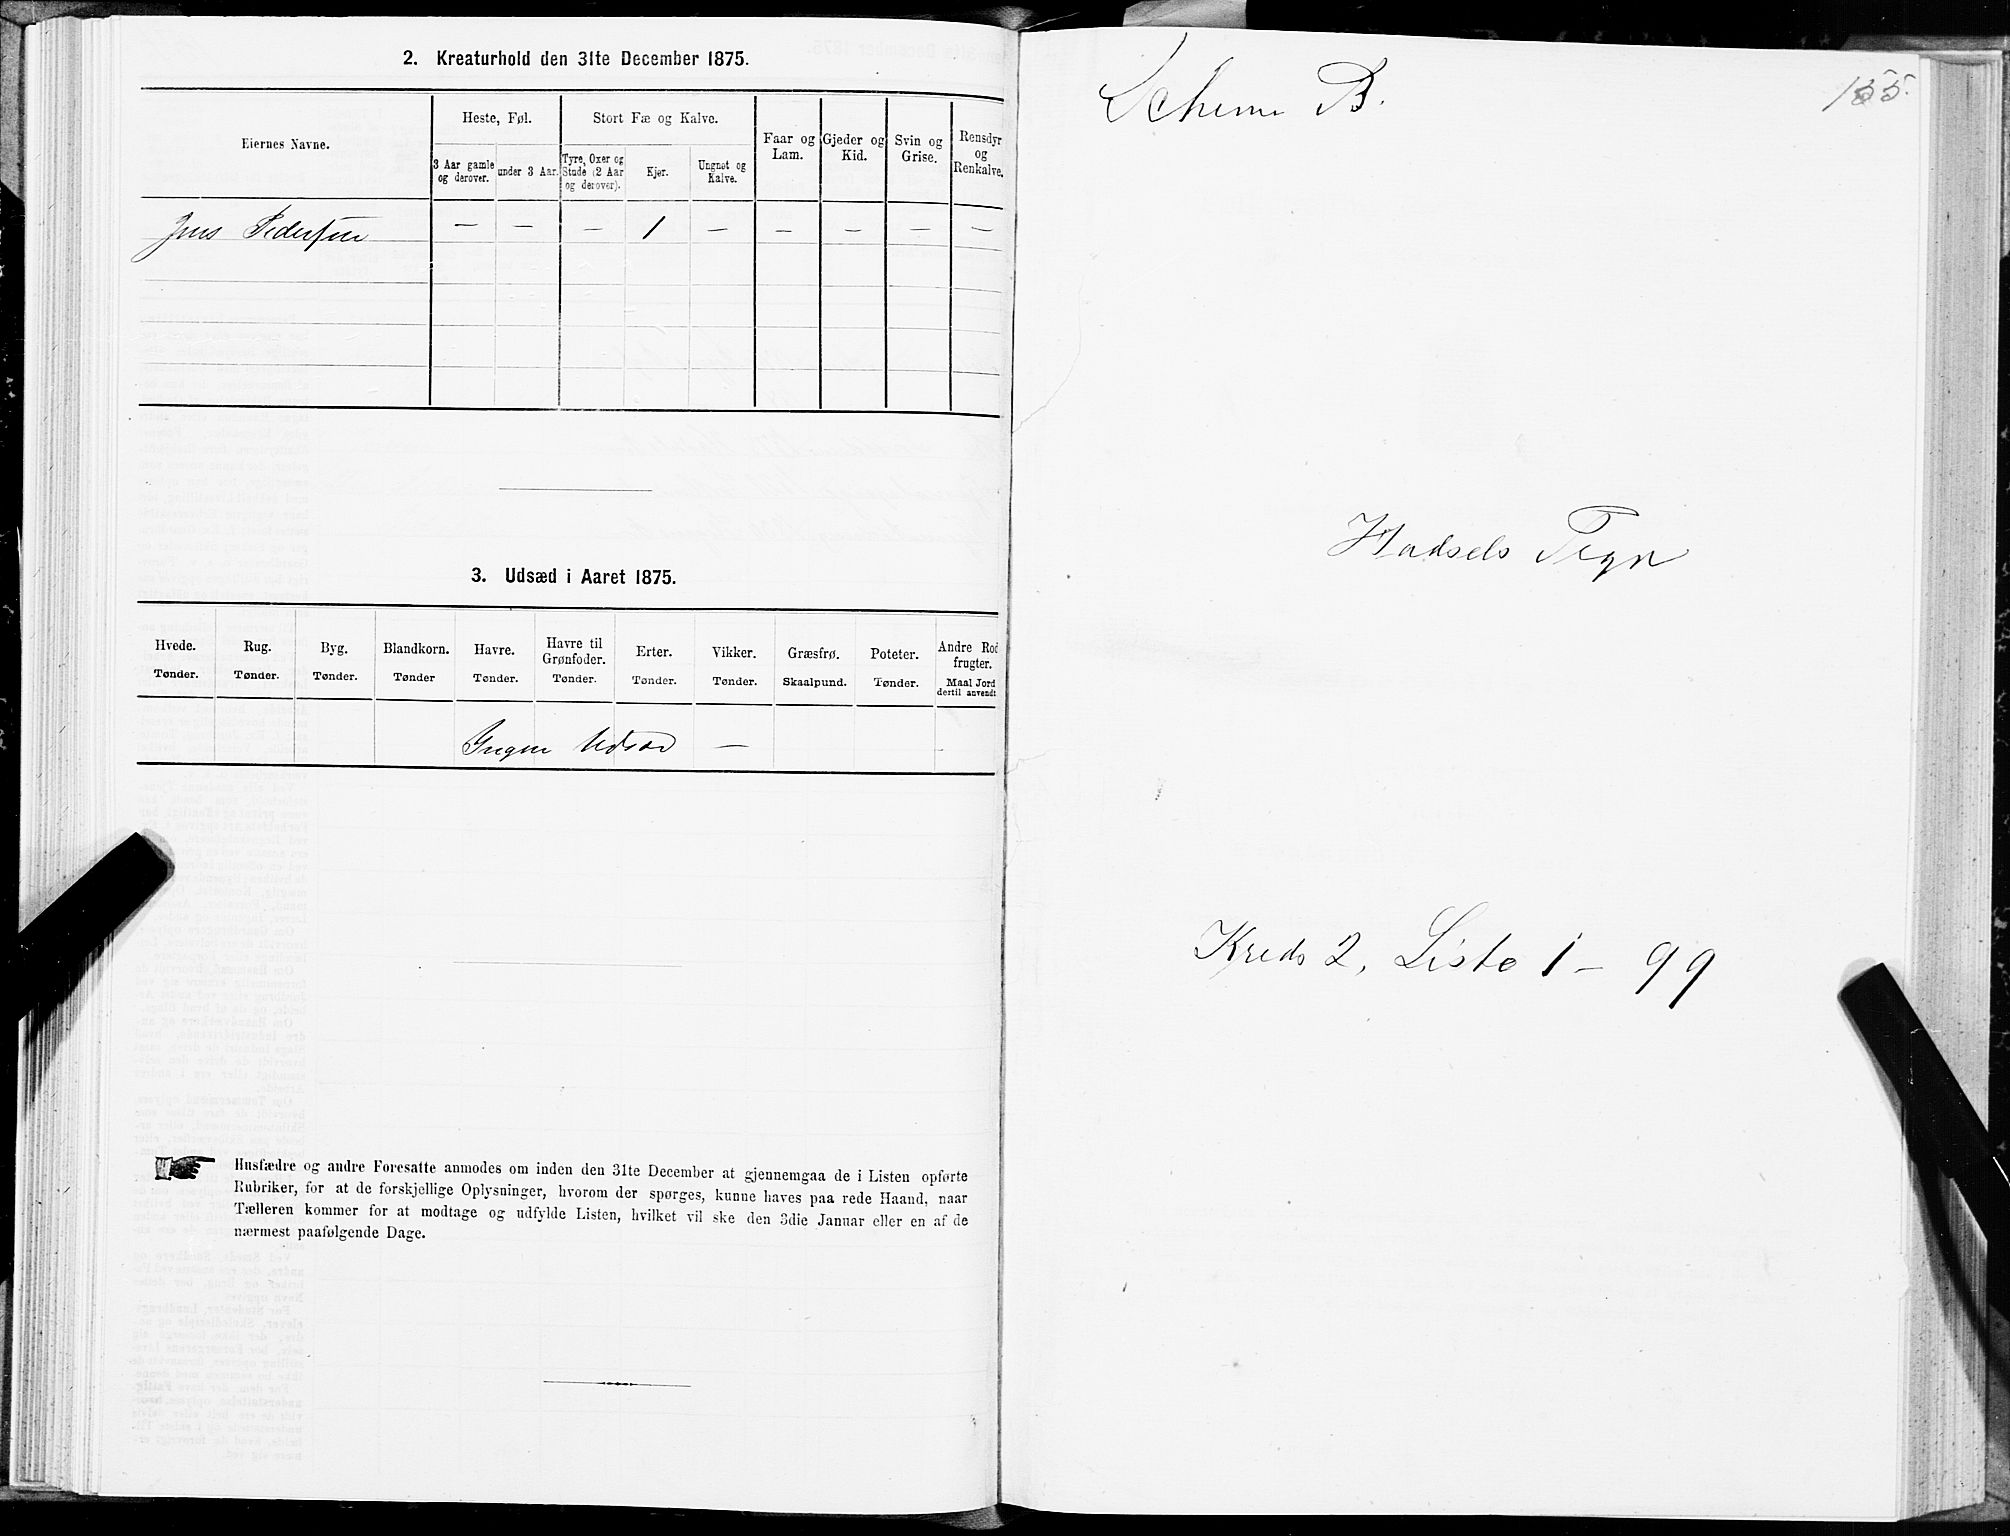 2. Kreaturhold den 31te December 1875.
Eiernes Navne.
Heste, Føl.
Stort Fæ og Kalve.
Faar og Lam.
Gjeder og Kid.
Svin og Grise.
Rensdyr og Renkalve.
3 Aar gamle og derover.
under 3 Aar.
Tyre, Oxer og Stude (2 Aar og derover).
Kjer.
Ungnøt og Kalve.
Jens Pedersen — — — 1 — — — — —
3. Udsæd i Aaret 1875.
Hvede. Rug. Byg. Blandkorn. Havre. Havre til Grønfoder. Erter. Vikker. Græsfrø. Poteter. Andre Rodfrugter.
Tønder. Tønder. Tønder. Tønder Tønder. Tønder. Tønder. Tønder. Skaalpund. Tønder. Maal Jord dertil anvendt
Ingen Udsæd —
Husfædre og andre Foresatte anmodes om inden den 31te December at gjennemgaa de i Listen opførte
Rubriker, for at de forskjellige Oplysninger, hvorom der spørges, kunne haves paa rede Haand, naar
Tælleren kommer for at modtage og udfylde Listen, hvilket vil ske den 3die Januar eller en af de
nærmest paafølgende Dage.
Schema B.
155.
Hadsels Pgn
Kreds 2, Liste 1 – 99